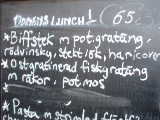 DAGENS LUNCH! (65:-)
*Biffstek m pot.gratäng,
rödvinsky, stekt lök, haricover
*Ostgratinerad fiskgratäng
m räkor, pot.mos
*Pasta m strimlad